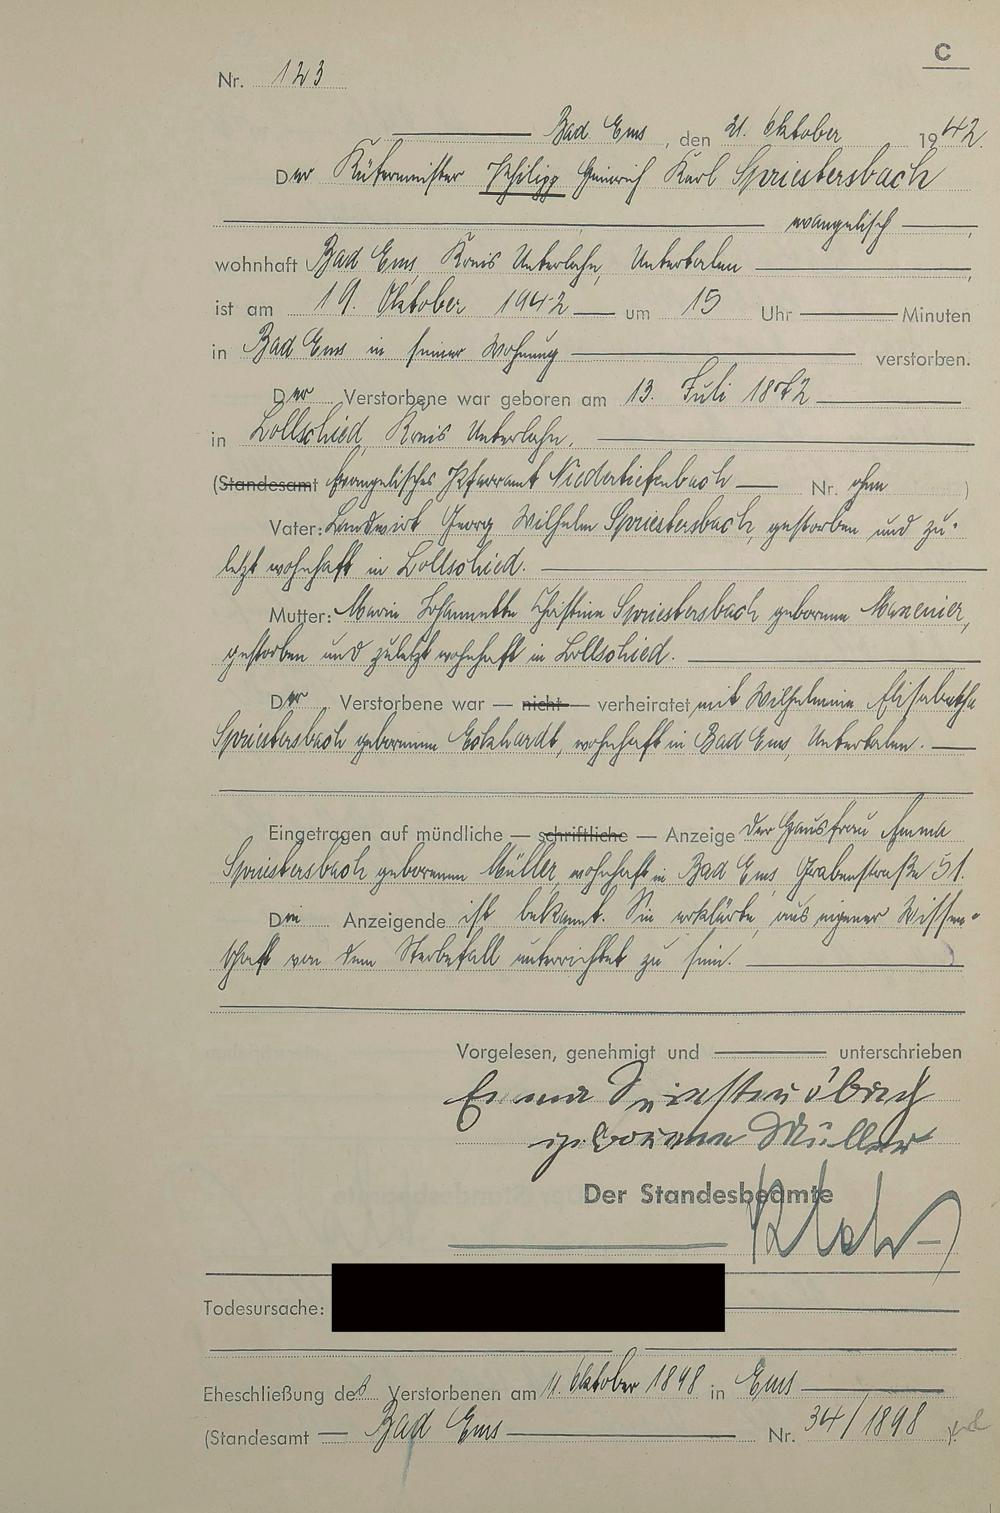 C
Nr. 123
Bad Ems, den 21. Oktober 1942.
Der Küfermeister Philipp Heinrich Karl Spriestersbach
evangelisch,
wohnhaft Bad Ems Kreis Unterlahn, Unterbalen,
ist am 19. Oktober 1942 um 15 Uhr Minuten
in Bad Ems in seiner Wohnung verstorben.
Der Verstorbene war geboren am 13. Juli 1872
in Lollschied, Kreis Unterlahn,
(Standesamt Evangelisches Pfarramt Niedertiefenbach Nr. ohne)
Vater: Landwirt Georg Wilhelm Spriestersbach, gestorben und zu-
letzt wohnhaft in Lollschied.
Mutter: Marie Johannette Christine Spriestersbach geborene Manenier,
gestorben und zuletzt wohnhaft in Lollschied.
Der Verstorbene war — nicht — verheiratet mit Wilhelmine Elisabetha
Spriestersbach geborenen Eckhardt, wohnhaft in Bad Ems, Unterbalen.
Eingetragen auf mündliche — schriftliche — Anzeige der Hausfrau Emma
Spriestersbach geborenen Müller, wohnhaft in Bad Ems, Grabenstraße 51.
Die Anzeigende ist bekannt. Sie erklärte, aus eigener Wissen-
schaft von dem Sterbefall unterrichtet zu sein.
Vorgelesen, genehmigt und unterschrieben
Emma Spriestersbach
geborene Müller
Der Standesbeamte
Todesursache:
Eheschließung des Verstorbenen am 11. Oktober 1898 in Ems
(Standesamt Bad Ems Nr. 34/1898).